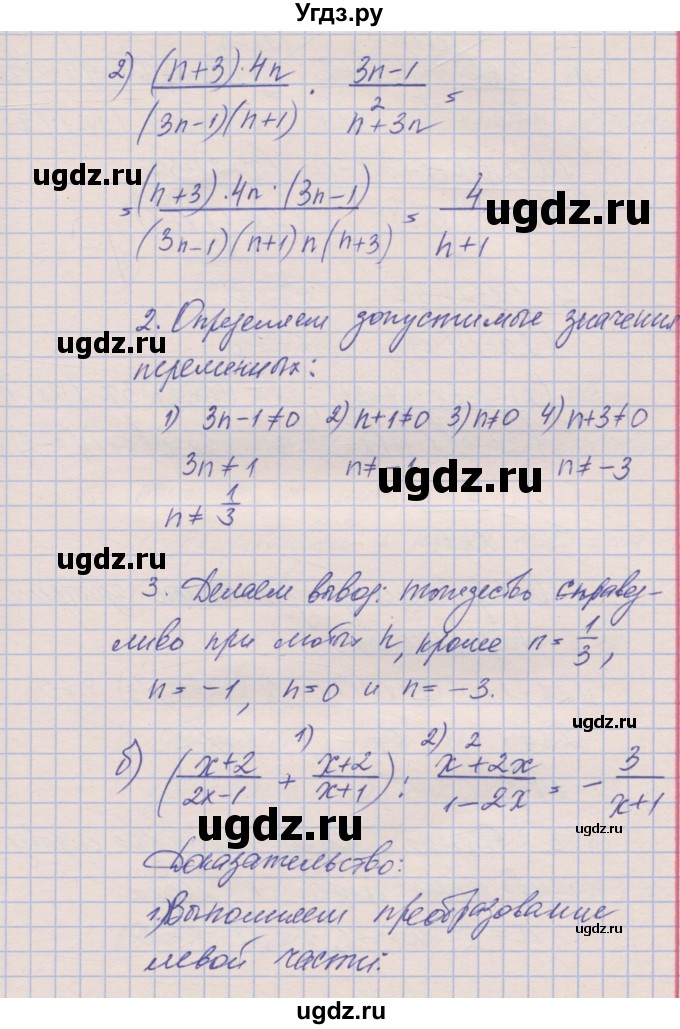 Угдз.ру
2) (n+3)·4n / (3n-1)(n+1) · 3n-1 / n²+3n =
ugdz.ru
= (n+3)·4n·(3n-1) / (3n-1)(n+1)n(n+3) = 4 / n+1
ugdz.ru
2. Определяем допустимые значения
ugdz.ru
переменных:
1) 3n-1≠0 2) n+1≠0 3) n≠0 4) n+3≠0
3n≠1 n≠-1 n≠-3
ugdz.ru
n≠ 1/3
ugdz.ru
3. Делаем вывод: тождество справед-
ливо при любых n, кроме n = 1/3,
ugdz.ru
n = -1, n=0 и n = -3.
1) 2)
б) (x+2 / 2x-1 + x+2 / x+1) : x²+2x / 1-2x = - 3 / x+1
ugdz.ru
Доказательство:
1.) Выполняем преобразование
левой части:
ugdz.ru
ugdz.ru